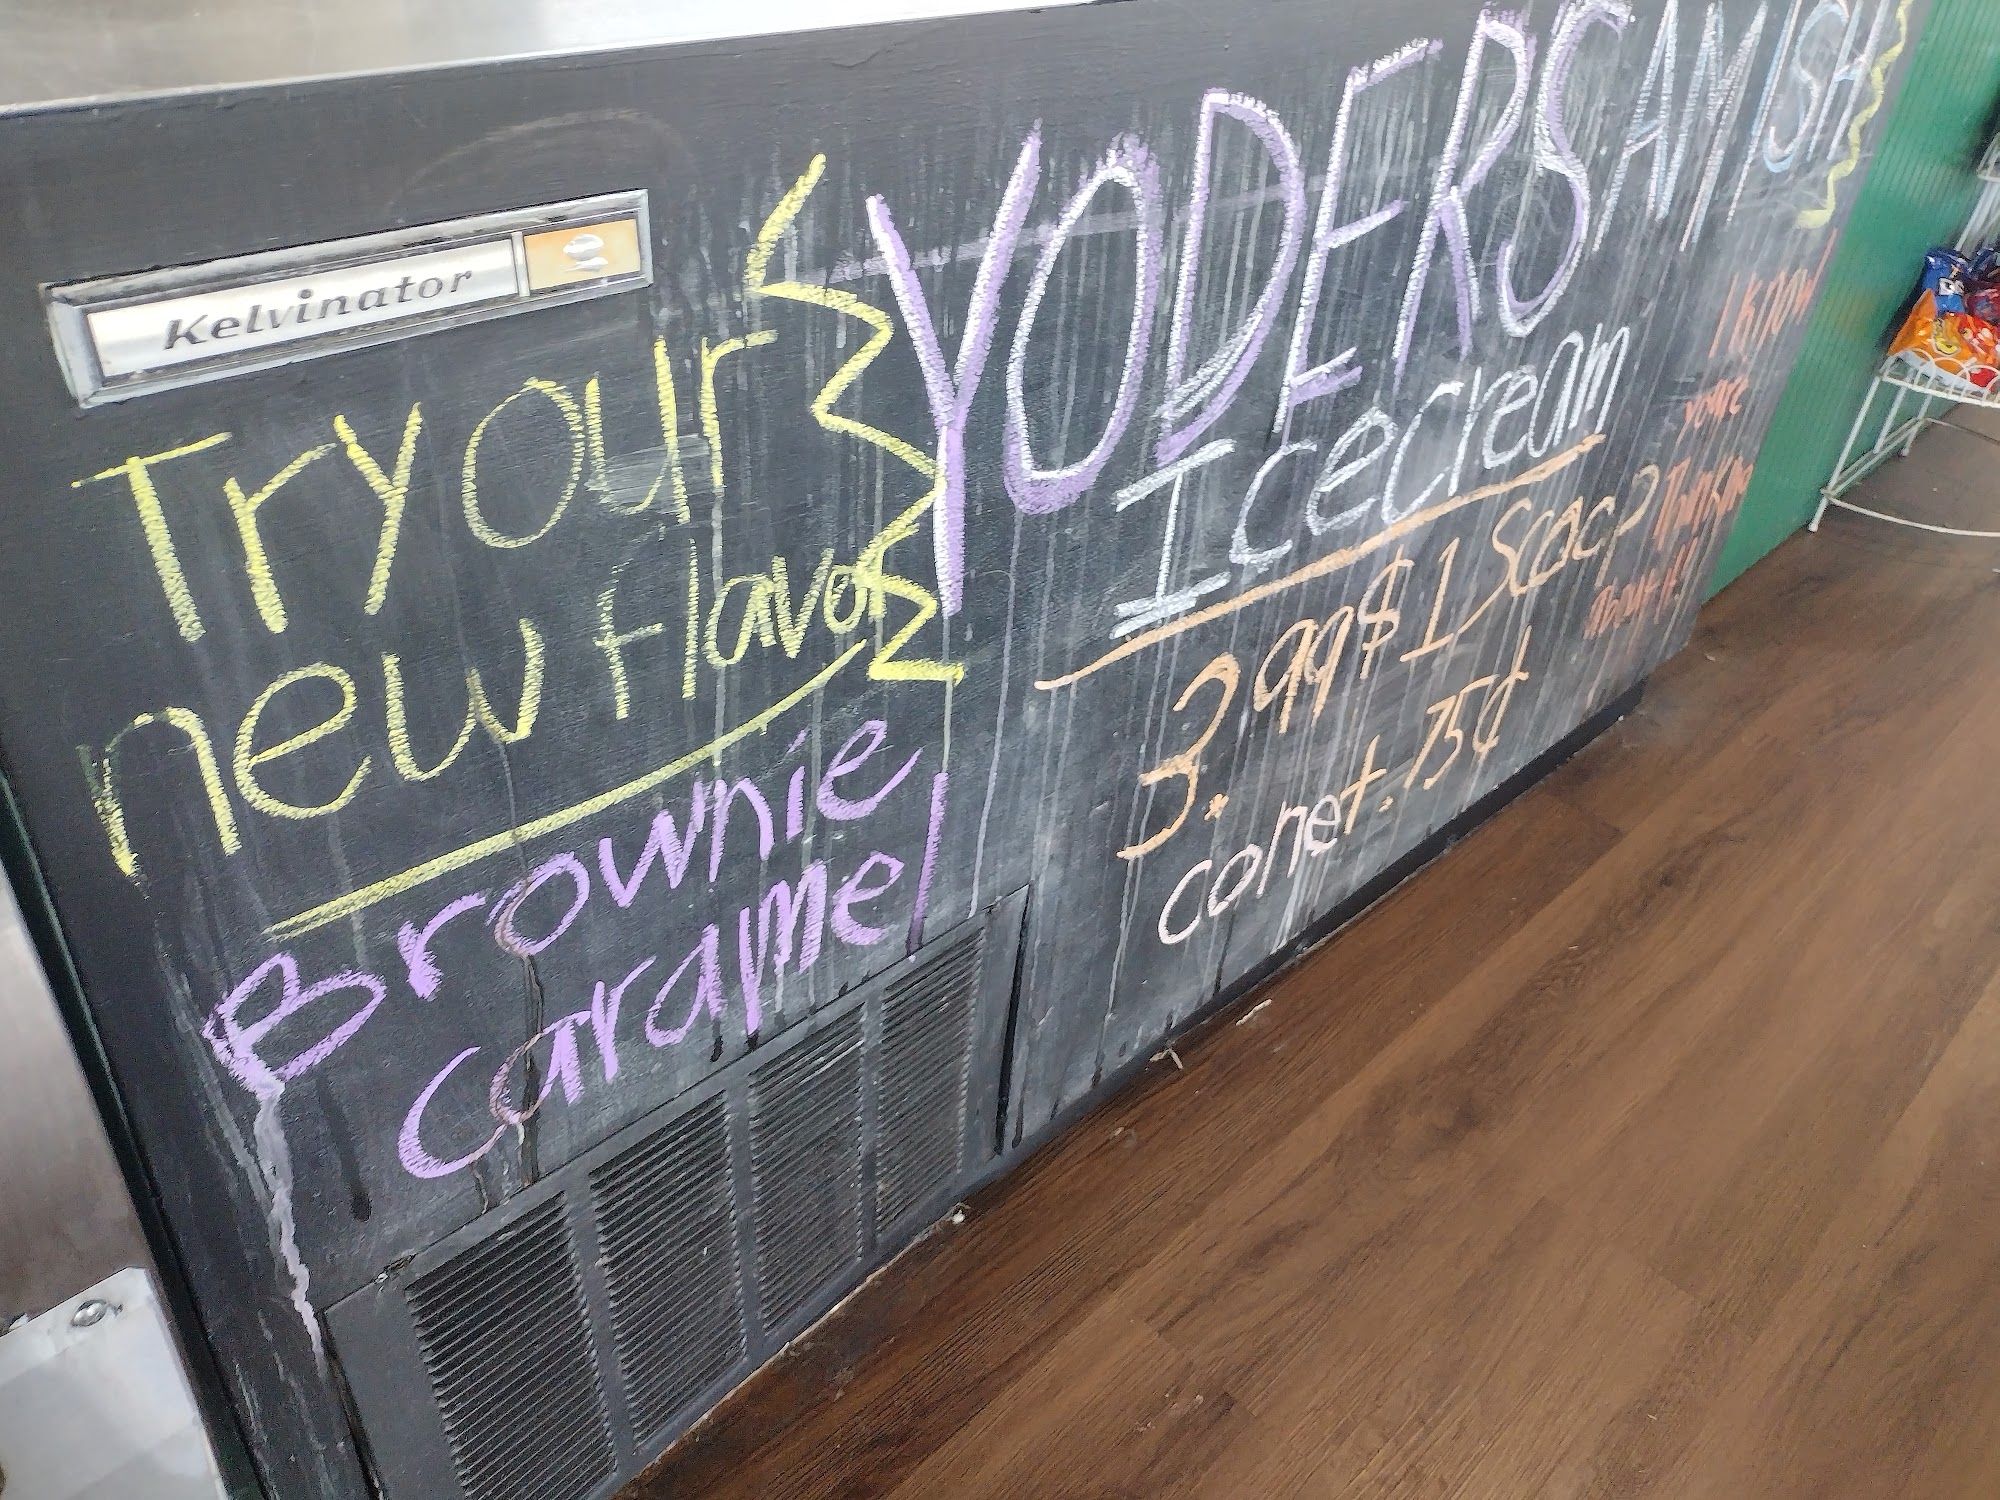 Kelvinator
Try our
new flavor
Brownie
caramel
YODERS AMISH
Icecream
3.99$ 1 Scoop
cone+.75¢
I know
youre
Thinking
About it!